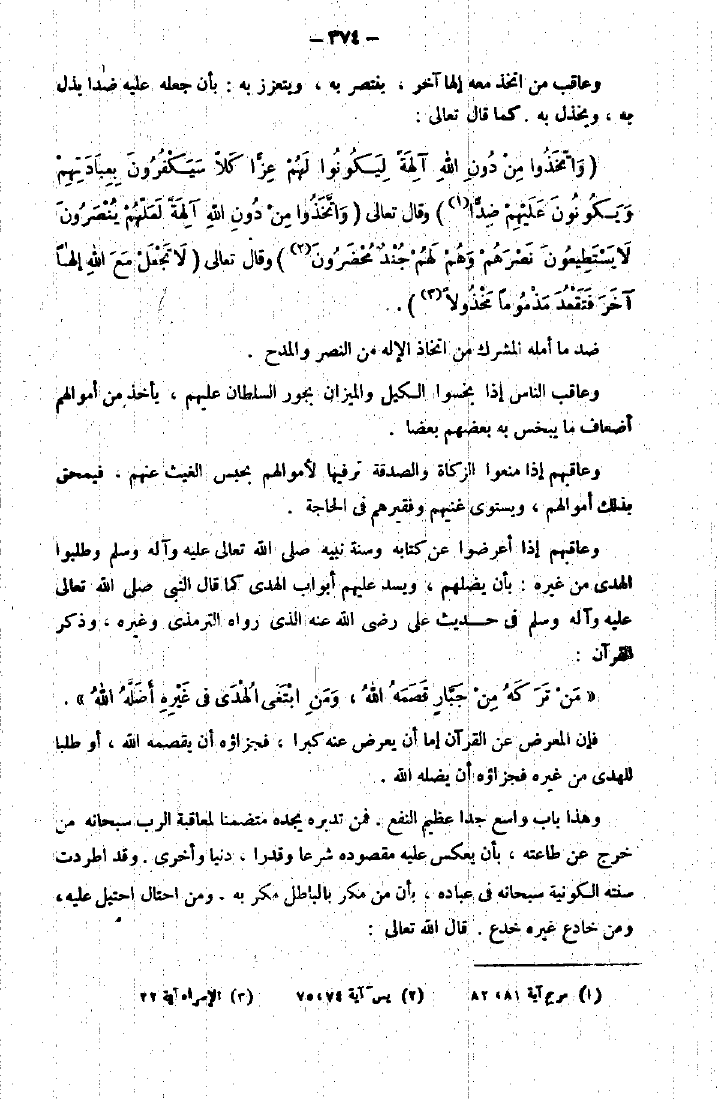 – ٣٧٤ –
وعاقب من اتخذ معه إلها آخر ، ينتصر به ، ويتعزز به : بأن جعله عليه ضدا يذل
به ، ويخذل به . كما قال تعالى :
( وَاتَّخَذُوا مِنْ دُونِ اللهِ آلِهَةً لِيَكُونُوا لَهُمْ عِزًّا كَلاَّ سَيَكْفُرُونَ بِعِبَادَتِهِمْ
وَيَكُونُونَ عَلَيْهِمْ ضِدًّا(١) ) وقال تعالى ( وَاتَّخَذُوا مِنْ دُونِ اللهِ آلِهَةً لَعَلَّهُمْ يُنْصَرُونَ
لاَ يَسْتَطِيعُونَ نَصْرَهُمْ وَهُمْ لَهُمْ جُنْدٌ مُحْضَرُونَ(٢) ) وقال تعالى ( لاَ تَجْعَلْ مَعَ اللهِ إِلهاً
آخَرَ فَتَقْعُدَ مَذْمُوماً مَخْذُولاً(٣) ) .
ضد ما أمله المشرك من اتخاذ الإله من النصر والمدح .
وعاقب الناس إذا بخسوا الكيل والميزان بجور السلطان عليهم ، يأخذ من أموالهم
أضعاف ما يبخس به بعضهم بعضا .
وعاقبهم إذا منعوا الزكاة والصدقة ترفيها لأموالهم بحبس الغيث عنهم . فيمحق
بذلك أموالهم ، ويستوى غنيهم وفقيرهم فى الحاجة .
وعاقبهم إذا أعرضوا عن كتابه وسنة نبيه صلى الله تعالى عليه وآله وسلم وطلبوا
الهدى من غيره : بأن يضلهم ، ويسد عليهم أبواب الهدى كما قال النبى صلى الله تعالى
عليه وآله وسلم فى حديث على رضى الله عنه الذى رواه الترمذى وغيره ، وذكر
القرآن :
« مَنْ تَرَكَهُ مِنْ جَبَّارٍ قَصَمَهُ اللهُ ، وَمَنِ ابْتَغَى الْهُدَى فِى غَيْرِهِ أَضَلَّهُ اللهُ » .
فإن المعرض عن القرآن إما أن يعرض عنه كبرا ، فجزاؤه أن يقصمه الله ، أو طلبا
للهدى من غيره فجزاؤه أن يضله الله .
وهذا باب واسع جدا عظيم النفع . فمن تدبره يجده متضمنا لمعاقبة الرب سبحانه من
خرج عن طاعته ، بأن يعكس عليه مقصوده شرعا وقدرا ، دنيا وأخرى . وقد اطردت
سنته الكونية سبحانه فى عباده ، بأن من مكر بالباطل مكر به . ومن احتال احتيل عليه ،
ومن خادع غيره خدع . قال الله تعالى :
(١) مريم آية ٨١ ، ٨٢ (٢) يس آية ٧٤ ، ٧٥ (٣) الإسراء آية ٢٢